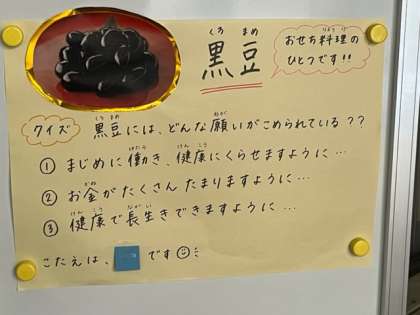 黒豆
おせち料理の
ひとつです!!
クイズ 黒豆には、どんな願いがこめられている??
① まじめに働き、健康にくらせますように…
② お金がたくさん たまりますように…
③ 健康で長生きできますように…
こたえは、 です